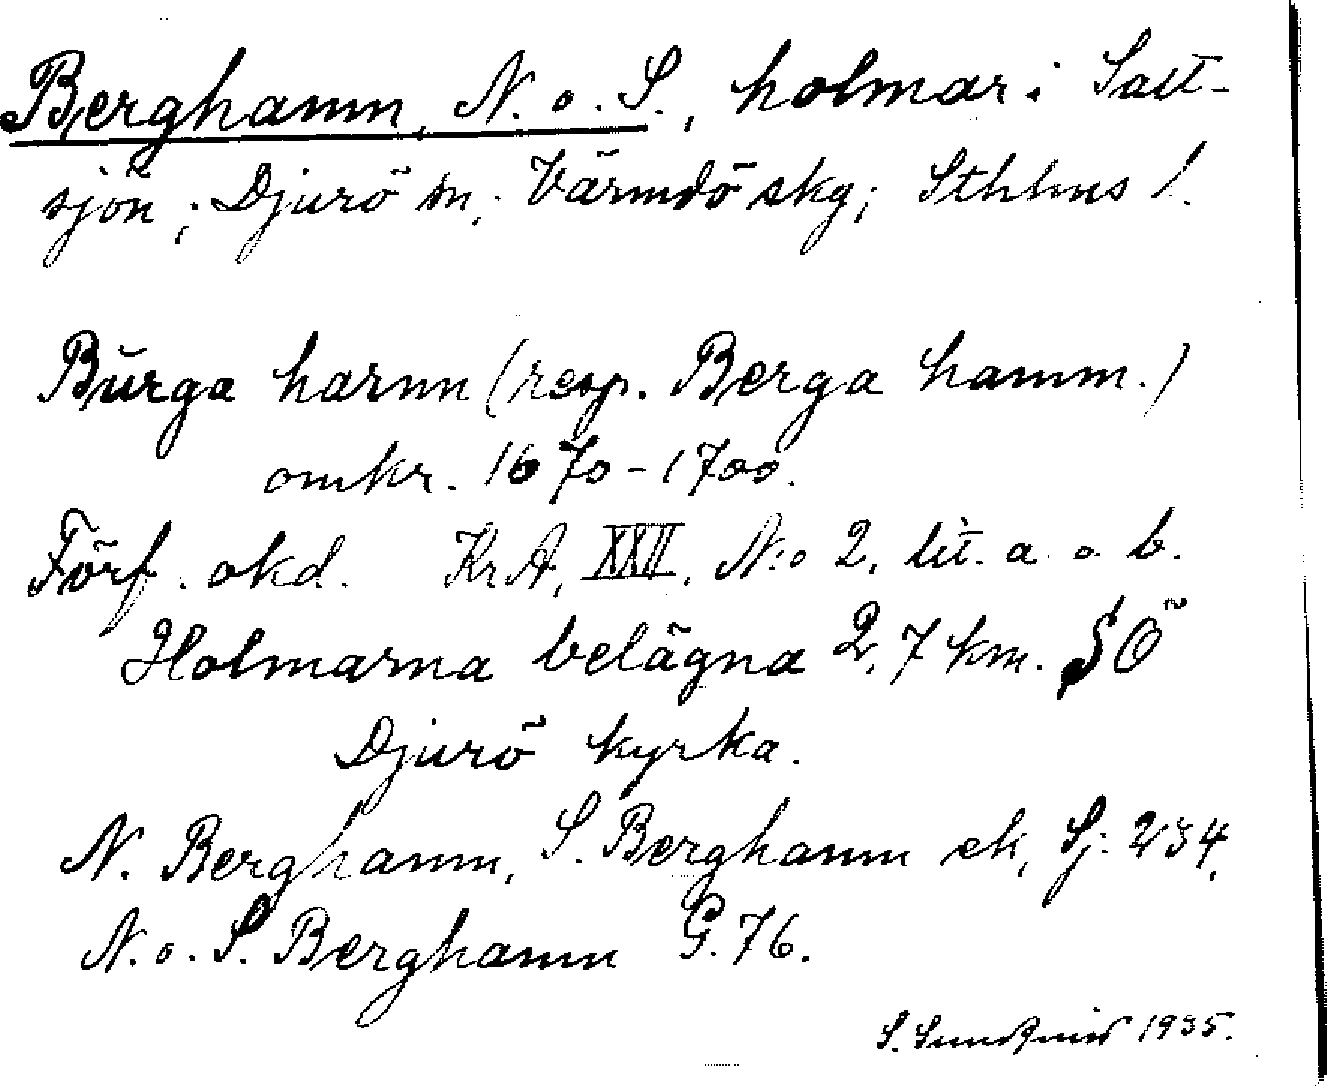 Berghamn, N. o. S., holmar i Salt-
sjön; Djurö sn; Värmdö skg; Sthlms l.
Bŭrga hamn (resp. Berga hamm.)
omkr. 1670-1700.
Förf. okd. KrA, XXII, N:o 2, lit. a. o. b.
Holmarna belägna 2,7 km. SÖ
Djurö kyrka.
N. Berghamn, S. Berghamn ek, Sj: 234,
N. o. S. Berghamn G. 76.
S. Sundqvist 1935.